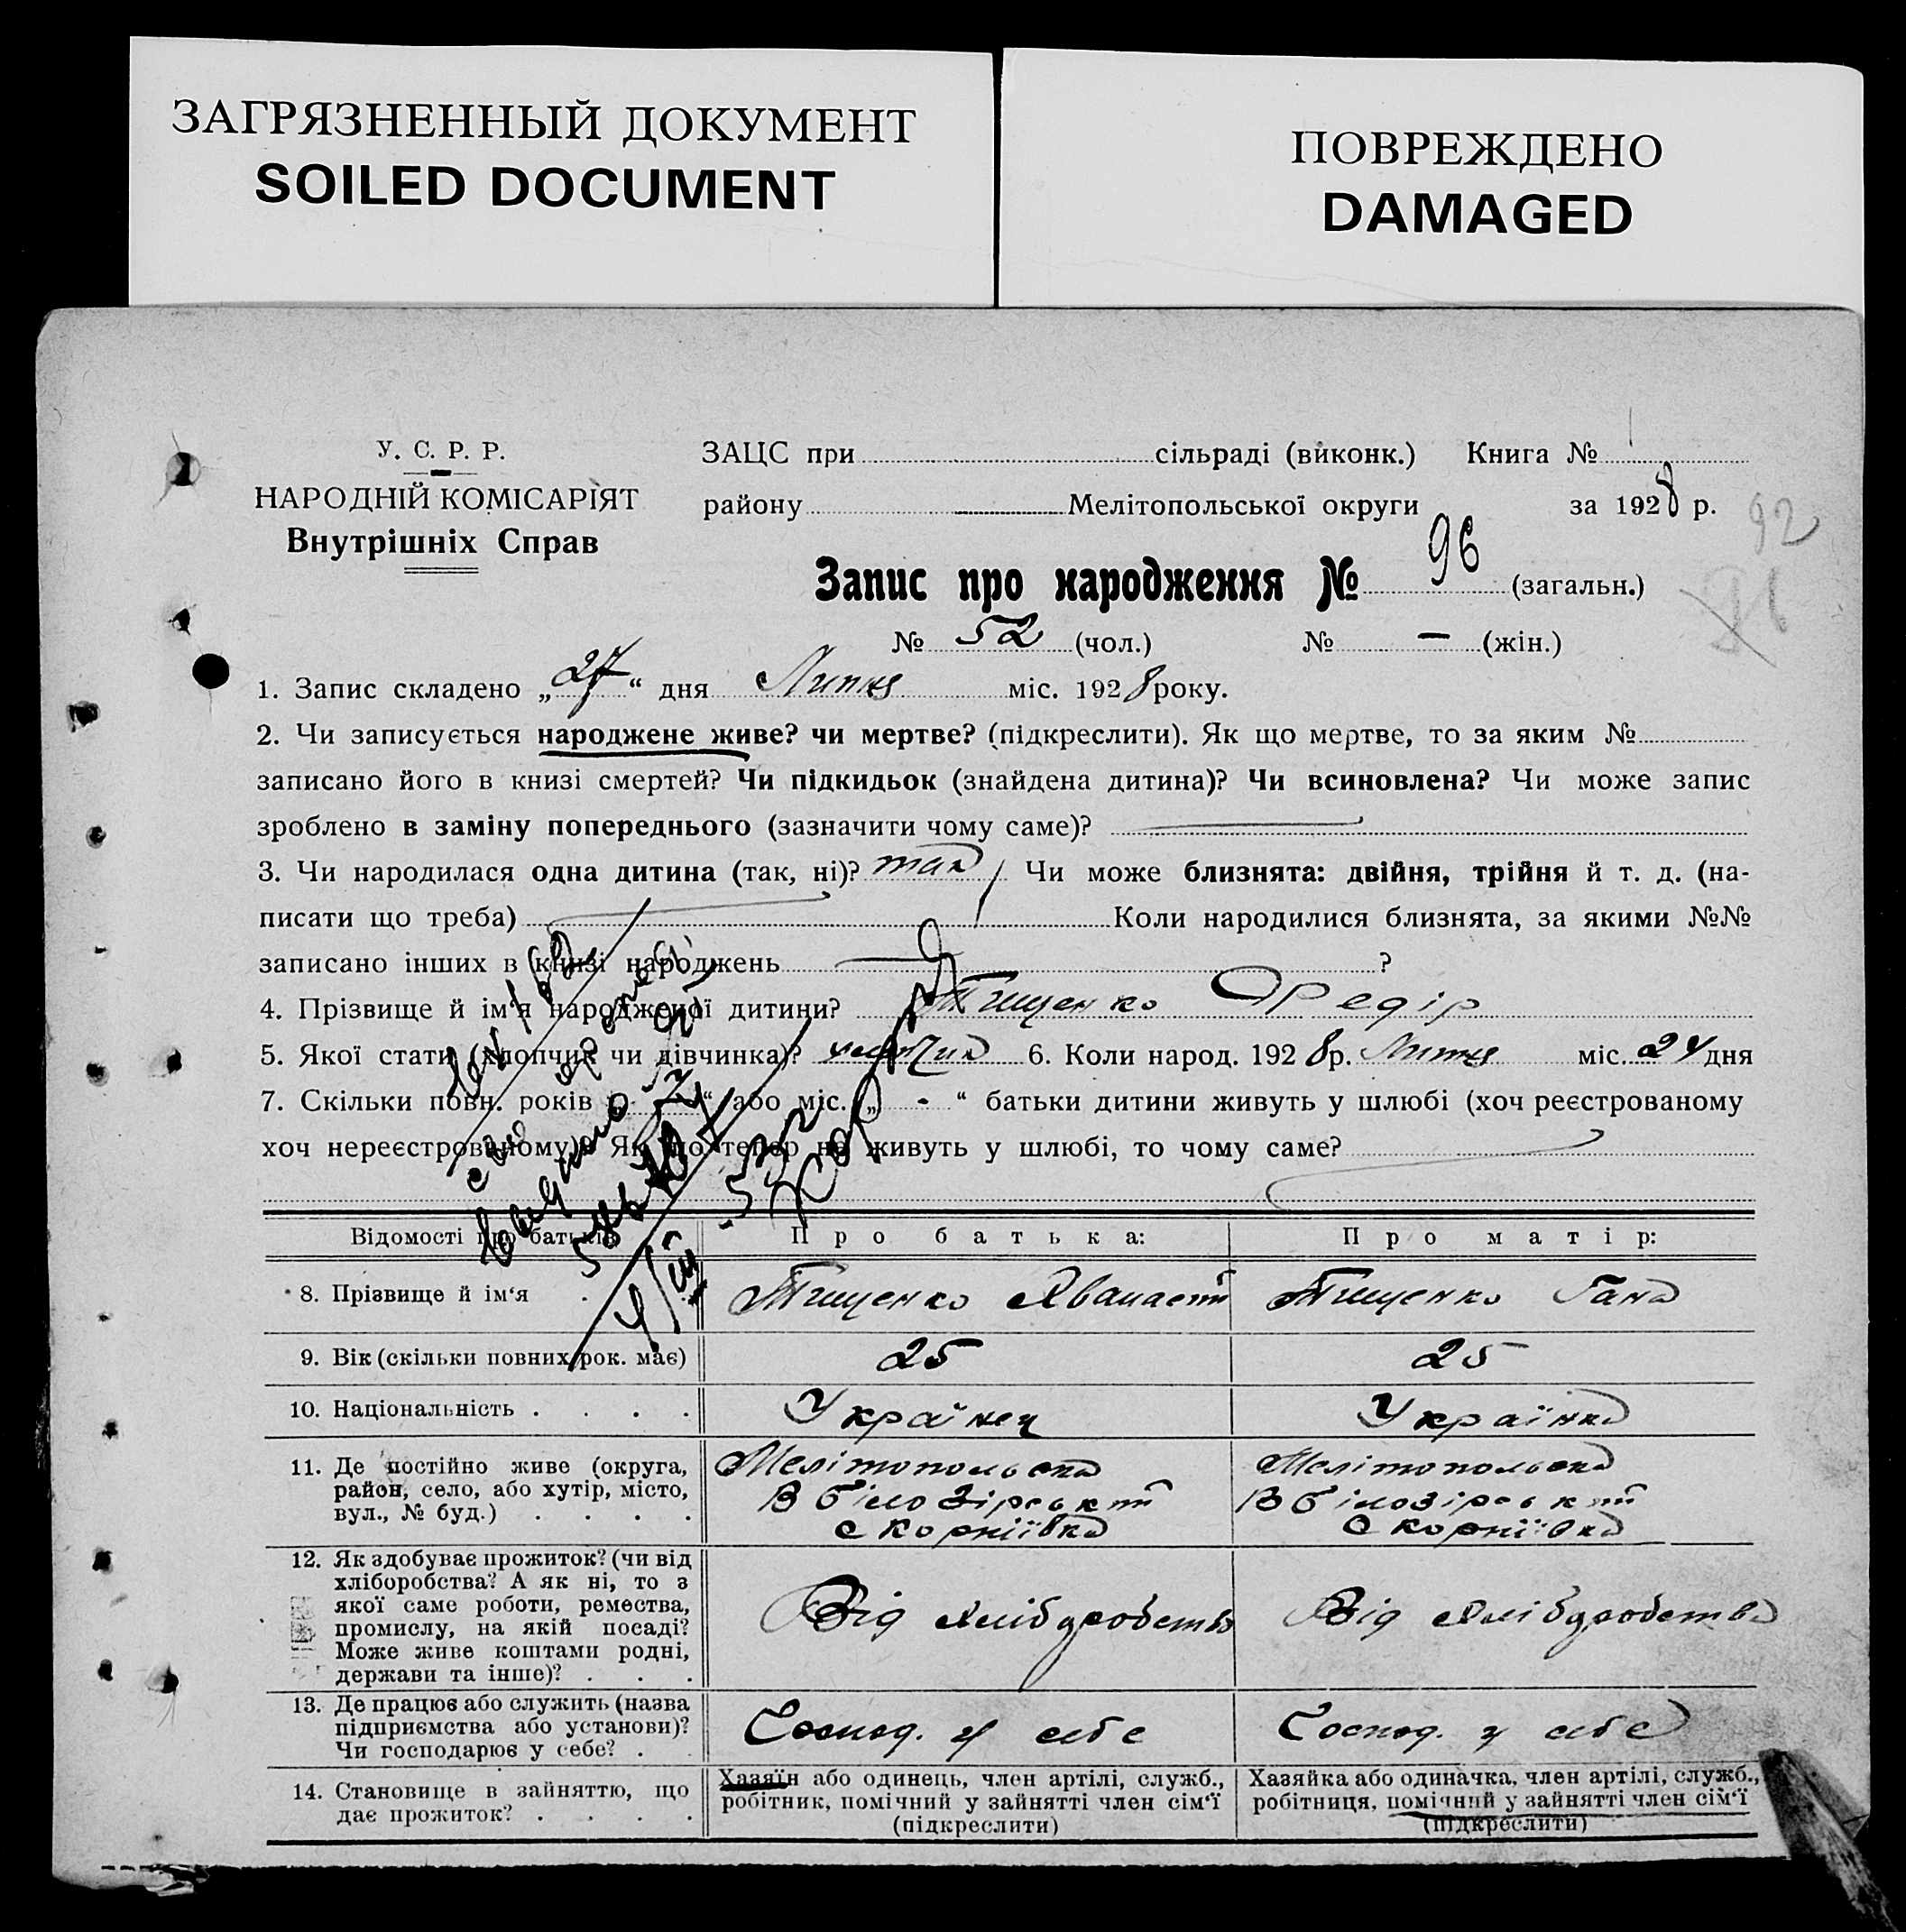 ЗАГРЯЗНЕННЫЙ ДОКУМЕНТ
SOILED DOCUMENT
ПОВРЕЖДЕНО
DAMAGED
У. С. Р. Р.
НАРОДНІЙ КОМІСАРІЯТ
Внутрішніх Справ
ЗАЦС при сільраді (виконк.) Книга №
району Мелітопольської округи за 1928 р.
92
91
Запис про народження № 96 (загальн.)
№ 52 (чол.) № — (жін.)
1. Запис складено „27“ дня Липня міс. 1928 року.
2. Чи записується народжене живе? чи мертве? (підкреслити). Як що мертве, то за яким №
записано його в книзі смертей? Чи підкидьок (знайдена дитина)? Чи всиновлена? Чи може запис
зроблено в заміну попереднього (зазначити чому саме)?
3. Чи народилася одна дитина (так, ні)? так Чи може близнята: двійня, трійня й т. д. (на-
писати що треба) Коли народилися близнята, за якими №№
записано інших в книзі народжень ?
4. Прізвище й ім‘я народженої дитини? Тищенко Федір
5. Якої статі (хлопчик чи дівчинка)? хлопчик 6. Коли народ. 1928 р. Липня міс. 24 дня
7. Скільки повн. років „7“ або міс. „-“ батьки дитини живуть у шлюбі (хоч реєстрованому
хоч нереєстрованому)? Як що тепер не живуть у шлюбі, то чому саме?
Відомості про батьків
Про батька:
Про матір:
8. Прізвище й ім‘я
Тищенко Яванастій
Тищенко Гана
9. Вік (скільки повних рок. має)
25
25
10. Національність . . . .
Українец
Українка
11. Де постійно живе (округа,
район, село, або хутір, місто,
вул., № буд.) . . . .
Мелітопольска
В білозірський
с Корніївка
Мелітопольска
В білозірський
с Корніївка
12. Як здобуває прожиток? (чи від
хліборобства? А як ні, то з
якої саме роботи, ремества,
промислу, на якій посаді?
Може живе коштами родні,
держави та інше)? . . .
Від хлібуробства
Від хлібуробства
13. Де працює або служить (назва
підприємства або установи)?
Чи господарює у себе? . .
Господ. у себе
Господ. у себе
14. Становище в зайняттю, що
дає прожиток? . . . .
Хазяїн або одинець, член артілі, служб.,
робітник, помічний у зайнятті член сім‘ї
(підкреслити)
Хазяйка або одиначка, член артілі, служб.,
робітниця, помічний у зайнятті член сім‘ї
(підкреслити)